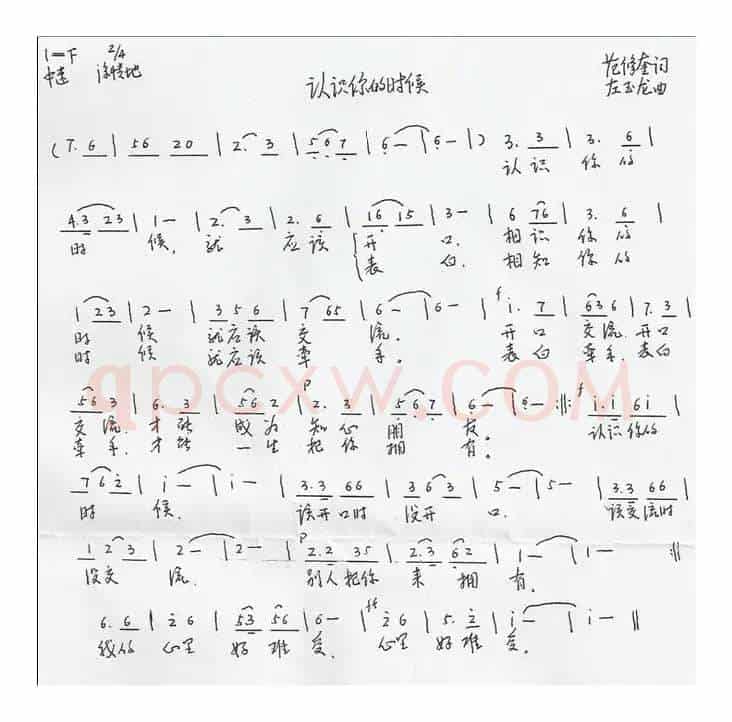 1=F 2/4
中速 深情地
认识你的时候
范修奎词
左玉龙曲
(7. 6 | 56 20 | 2. 3 | 5 6 7 | 6 — | 6 — |) 3. 3 | 3. 6 |
认识 你的
4.3 23 | 1 — | 2. 3 | 2. 6 | 16 15 | 3 — | 6 76 | 3. 6 |
时 候, 就 应该 开 口. 相识 你的
表 白. 相知 你的
1 23 | 2 — | 3 5 6 | 7 65 | 6 — | 6 — | f i. 7 | 6 3 6 | 7. 3 |
时 候 就应该 交 流. 开口 交流 开口
时 候 就应该 牵 手. 表白 牵手. 表白
5 6 3 | 6. 3 | 5 6 2 | p 2. 3 | 5 6 7 | 6 — | 6 — :||: f i. i 6 i |
交 流. 才能 成为 知心 朋 友. 认识你的
牵 手. 才能 一生 把你 拥 有.
qpcxw.com
7 6 2 | i — | i — | 3.3 66 | 3 6 3 | 5 — | 5 — | 3.3 66 |
时 候. 该开口时 没开 口. 该交流时
1 2 3 | 2 — | 2 — | p 2.2 35 | 2.3 62 | 1 — | 1 — :||
没交 流. 别人把你 来 拥 有.
6. 6 | 2 6 | 53 56 | 6 — | ff 2 6 | 5. 2 | i — | i — ||
我的 心里 好 难 受. 心里 好难 受.